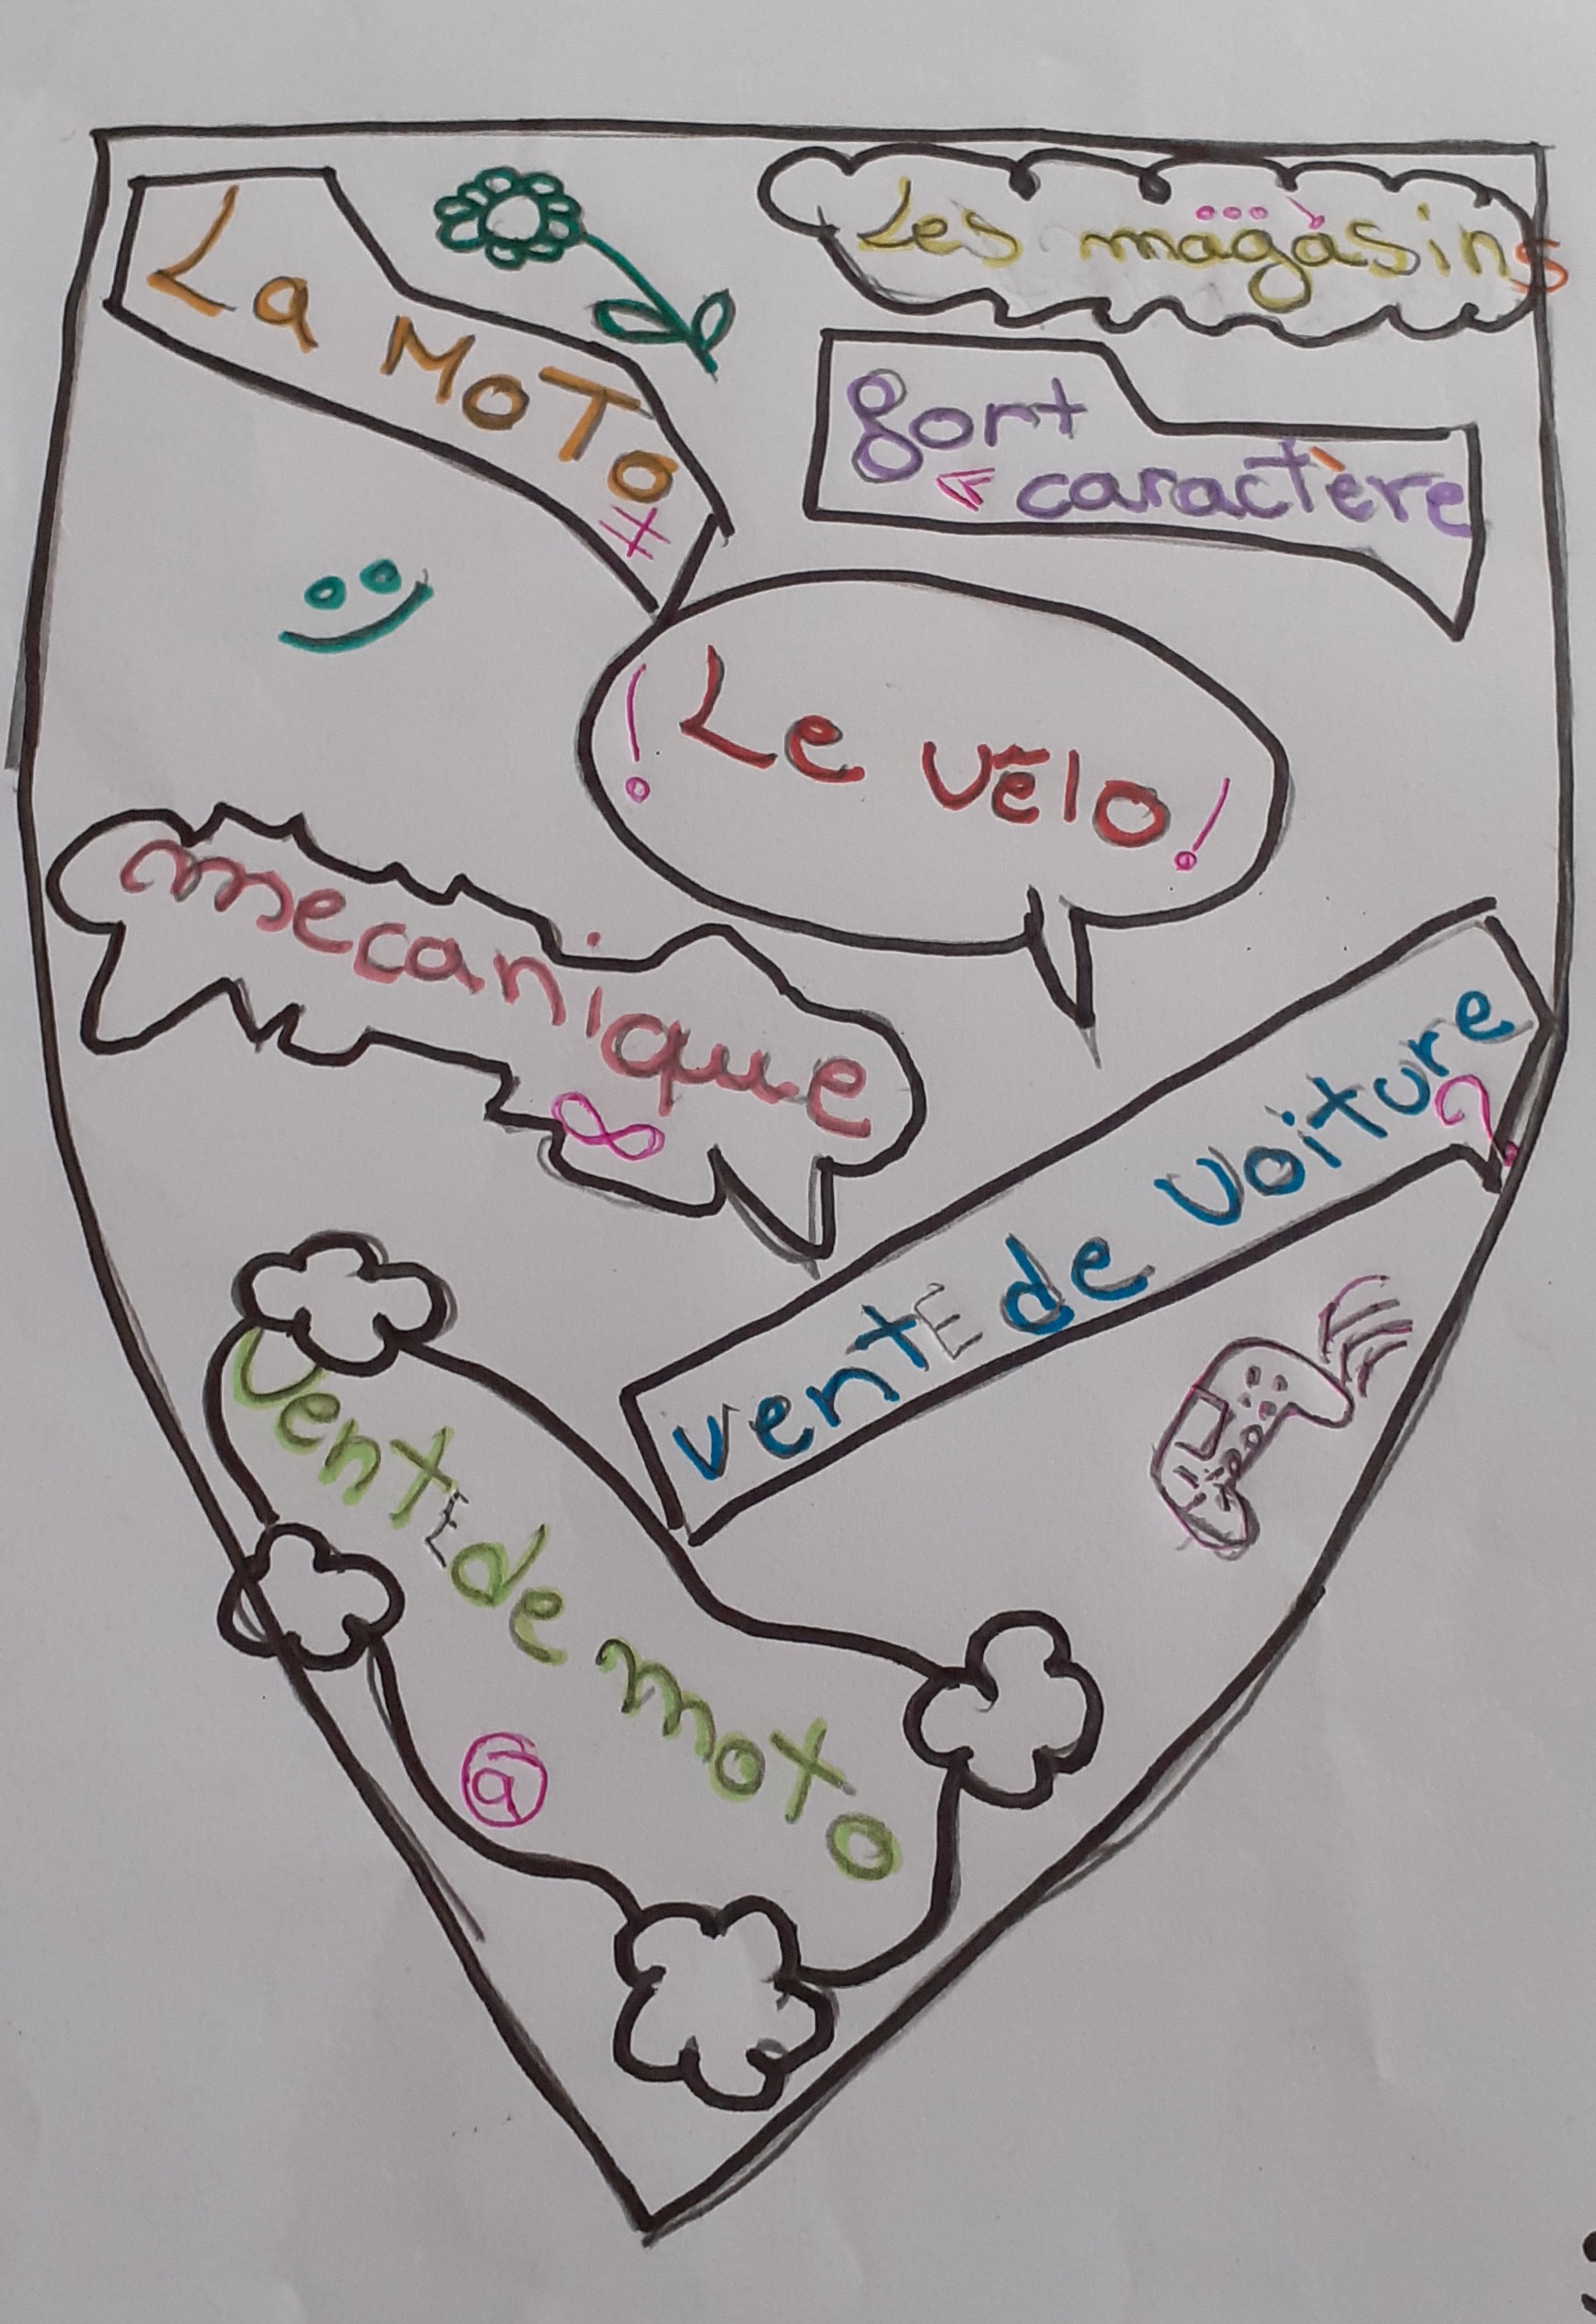 La MoTo
#
Les magasins
...
fort
caractère
! Le vélo !
mecanique
∞
vente de voiture
?
Vente de moto
@